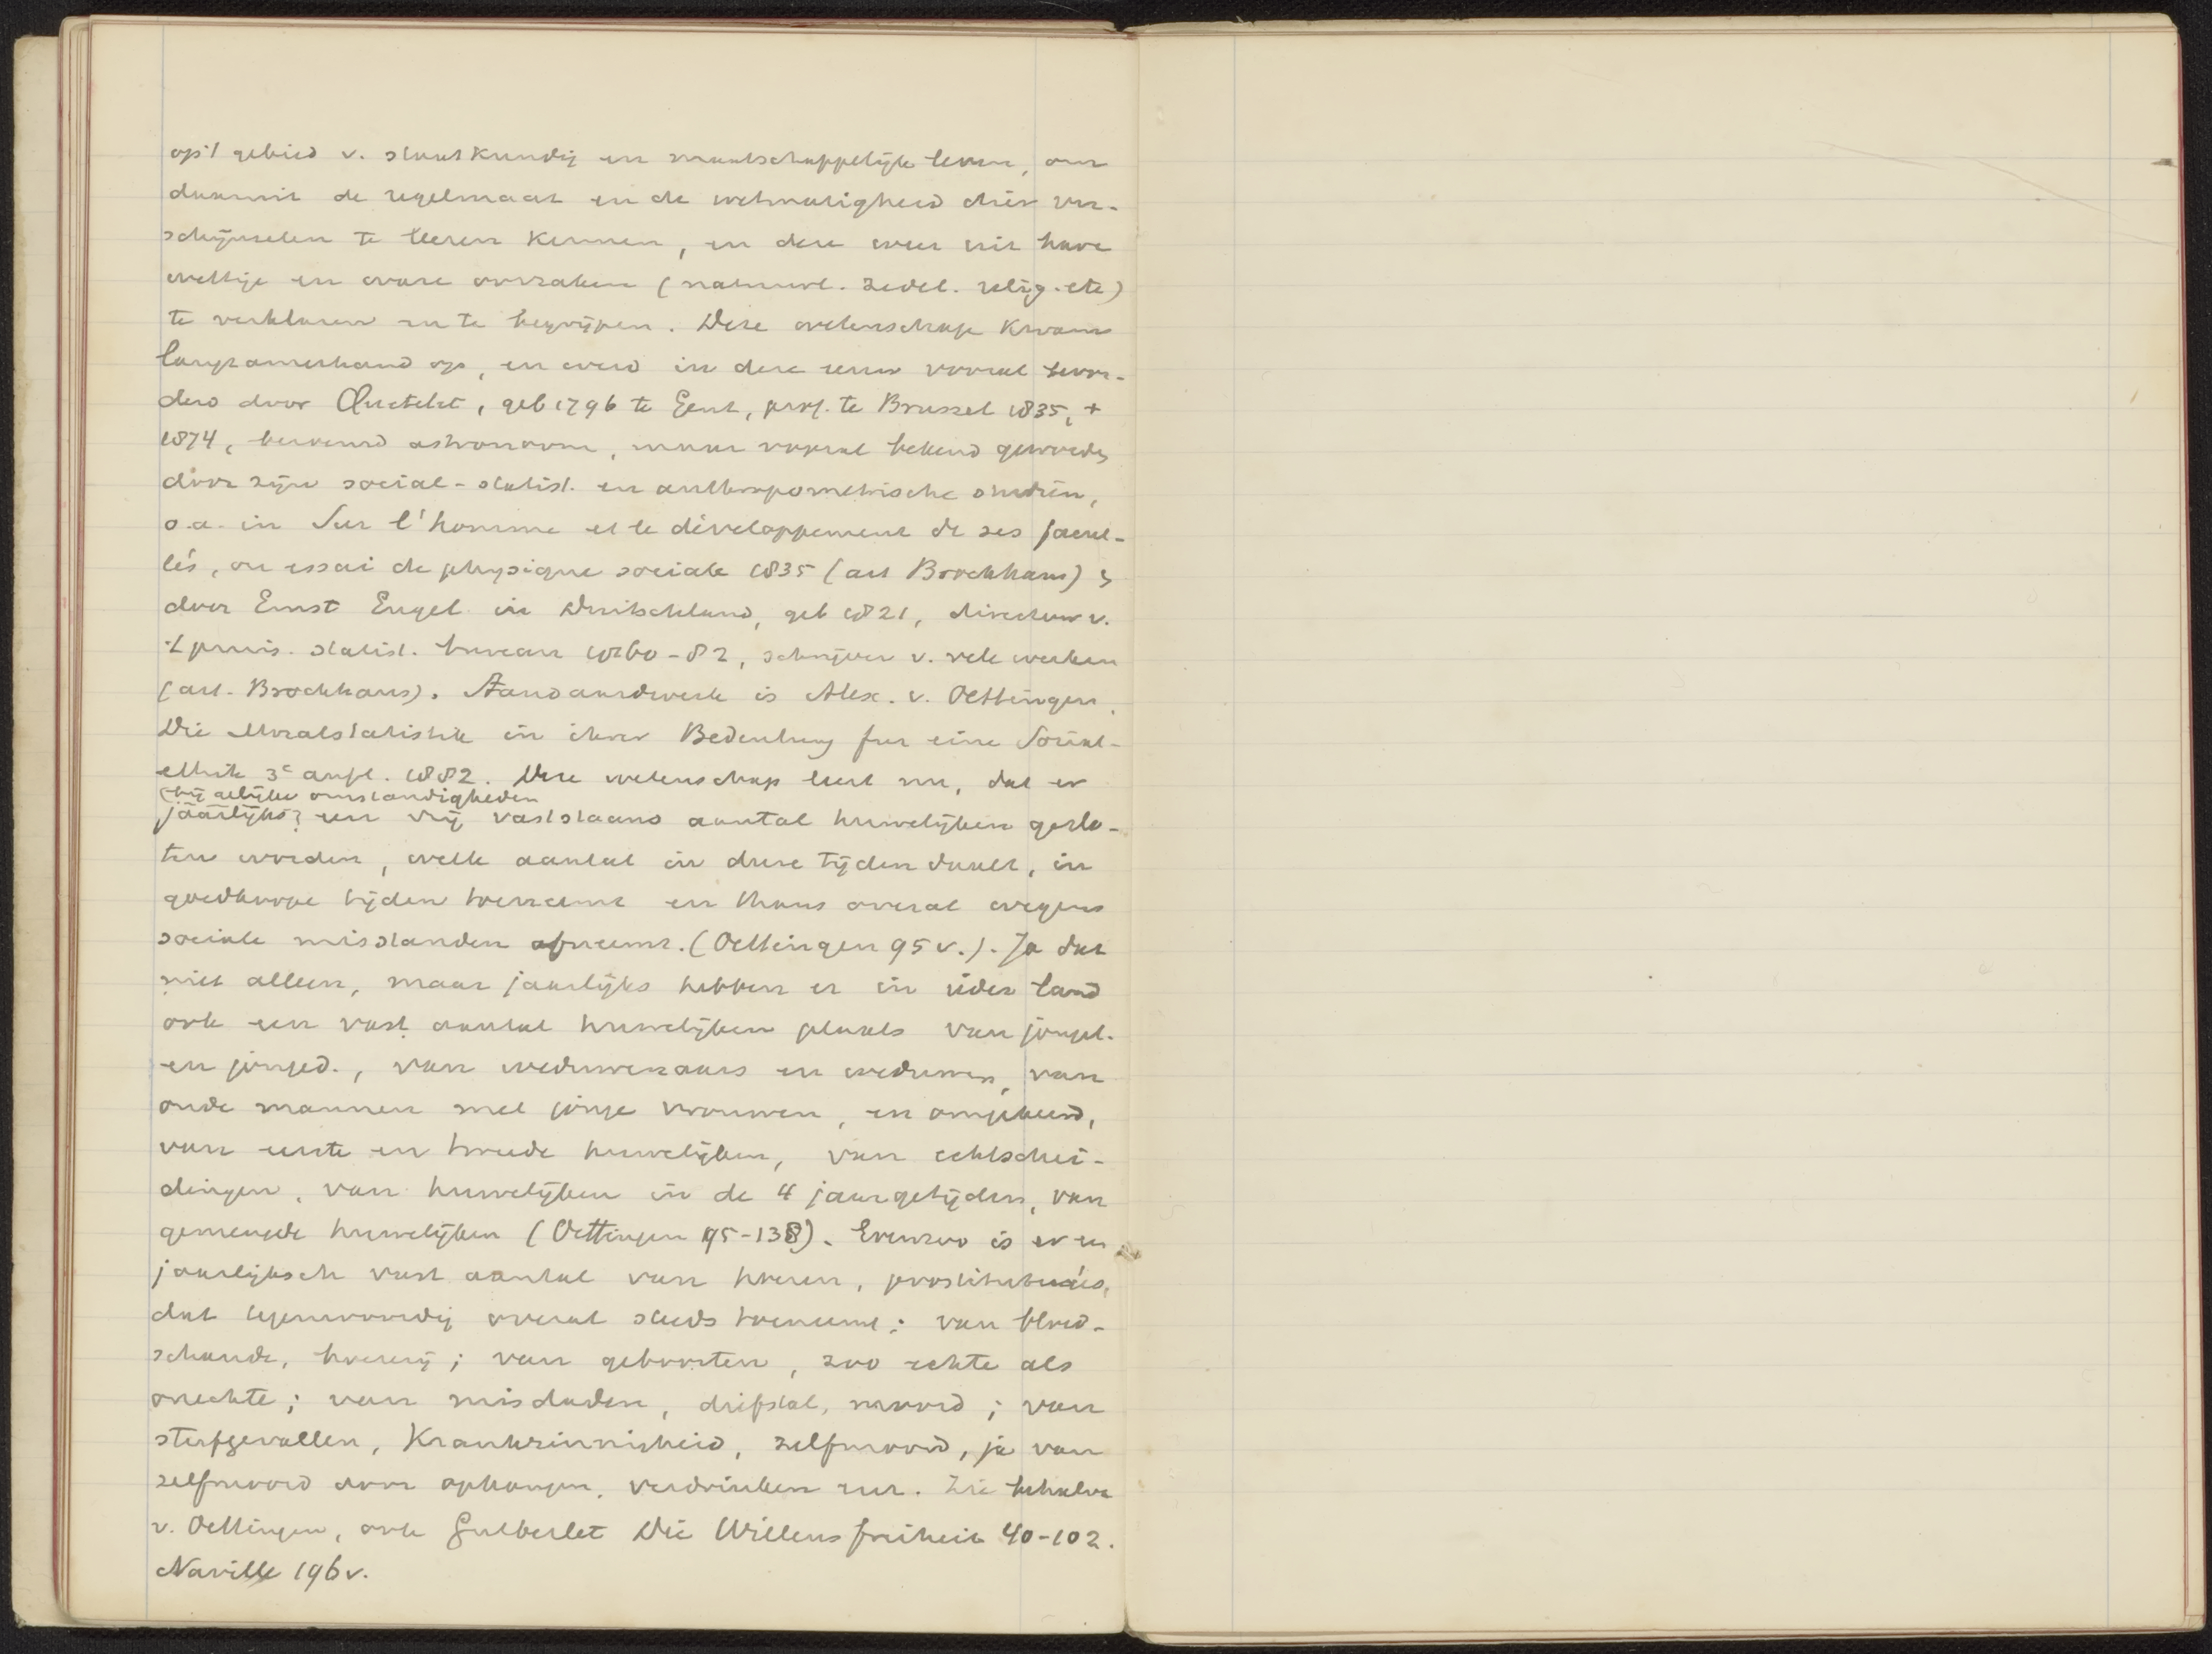 op 't gebied v. staatkundig en maatschappelijk leven, om
daaruit de regelmaat en de wetmatigheid dier ver-
schijnselen te leeren kennen, en deze weer uit hare
wettige en ware oorzaken (natuurl. zedel. relig. etc)
te verklaren en te begrijpen. Deze wetenschap kwam
langzamerhand op, en werd in deze eeuw vooral bevor-
derd door Quetelet, geb 1796 te Gent, prof. te Brussel 1835, +
1874, beroemd astronoom, maar vooral bekend geworden
door zijn social-statist. en anthropometrische studiën,
o.a. in Sur l'homme et le développement de ses facul-
tés, ou essai de physique sociale 1835 (art Brockhaus) &
door Ernst Engel in Duitschland, geb 1821, directeur v.
't pruis. statist. bureau 1860-82, schrijver v. vele werken
(art. Brockhaus). Standaardwerk is Alex. v. Oettingen,
Die Moralstatistik in ihrer Bedeutung fur eine Social-
ethik 3e aufl. 1882. Deze wetenschap leert nu, dat er
(bij gelijke omstandigheden
jaarlijks) een vrij vaststaand aantal huwelijken geslo-
ten worden, welk aantal in dure tijden daalt, in
goedkoope tijden toeneemt en thans overal wegens
sociale misstanden afneemt. (Oettingen 95 v.). Ja dat
niet alleen, maar jaarlijks hebben er in ieder land
ook een vast aantal huwelijken plaats van jongel.
en jonged., van weduwenaars en weduwen, van
oude mannen met jonge vrouwen, en omgekeerd,
van eerste en tweede huwelijken, van echtschei-
dingen, van huwelijken in de 4 jaargetijden, van
gemengde huwelijken (Oettingen 95-138). Evenzoo is er een
jaarlijksch vast aantal van hoeren, prostituées,
dat tegenwoordig overal steeds toeneemt; van bloed-
schande, hoererij; van geboorten, zoo echte als
onechte; van misdaden, diefstal, moord; van
sterfgevallen, Krankzinnigheid, zelfmoord, ja van
zelfmoord door ophangen, verdrinken enz. Zie behalve
v. Oettingen, ook Gutberlet Die Willensfreiheit 40-102.
Naville 196 v.